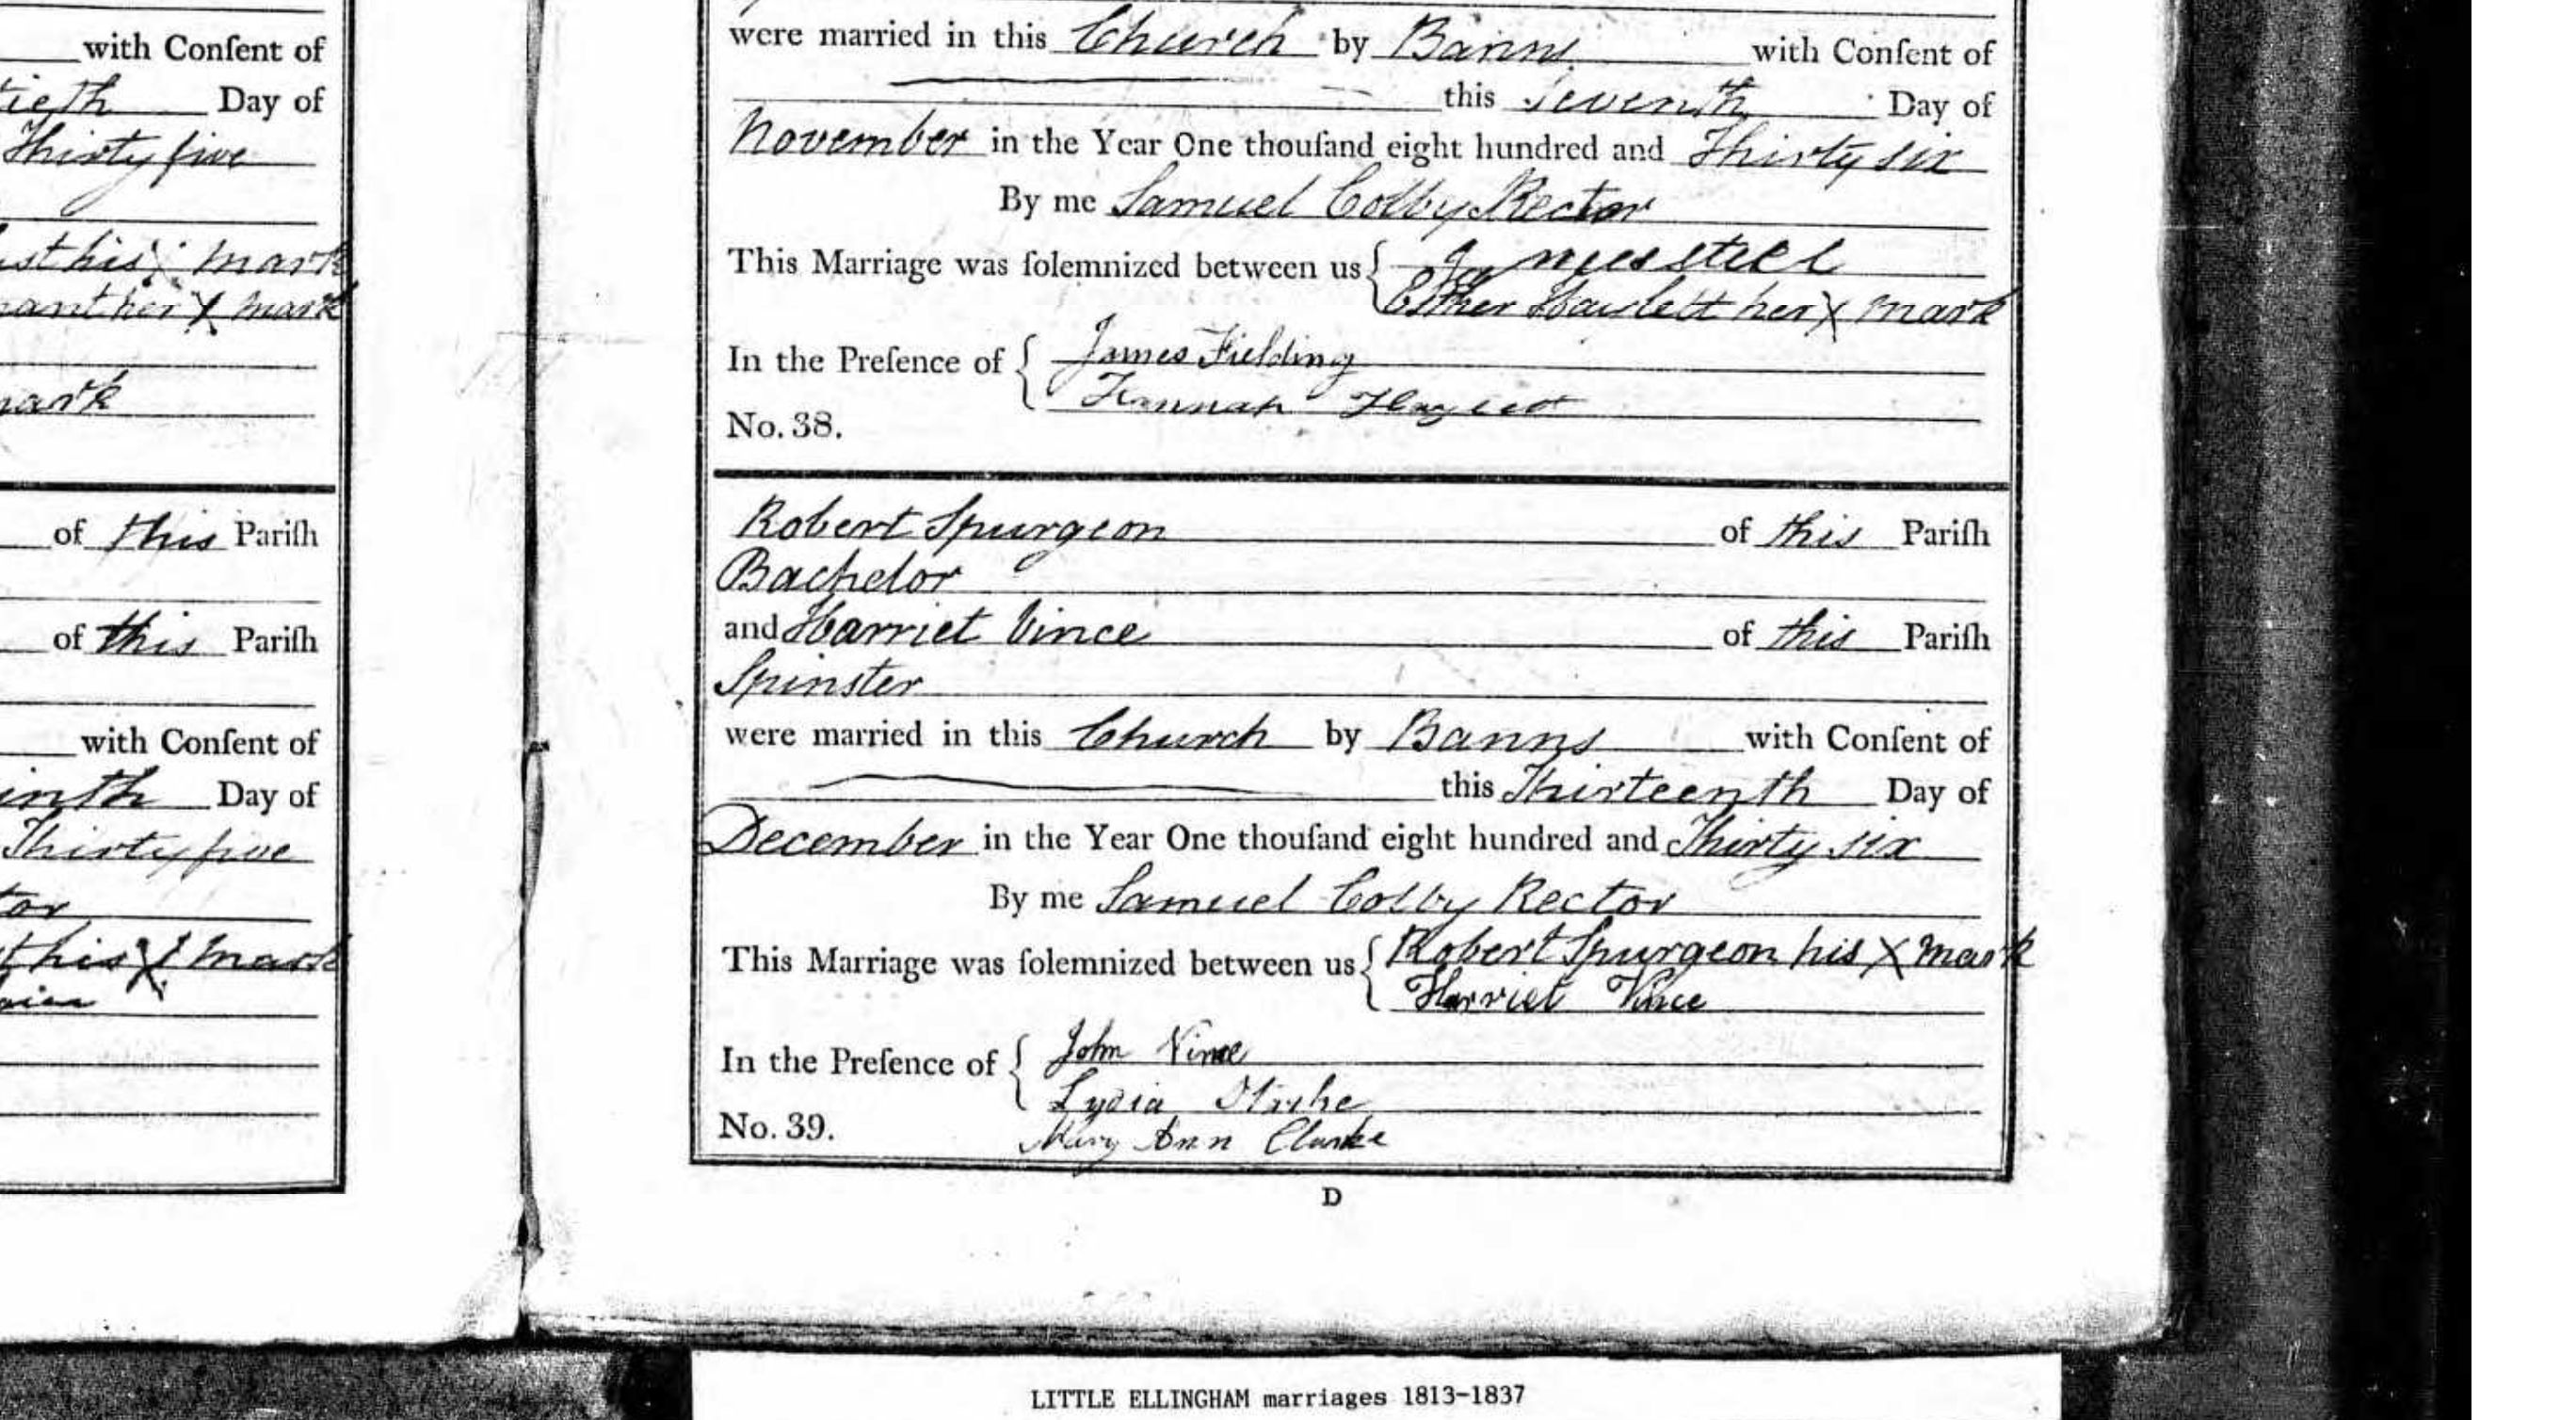 with Conſent of
tieth Day of
Thirty five
his mark
her X mark
mark
of this Pariſh
of this Pariſh
with Conſent of
inth Day of
Thirty five
tor
his X mark
were married in this Church by Banns with Conſent of
this Seventh Day of
November in the Year One thouſand eight hundred and Thirty six
By me Samuel Colby Rector
This Marriage was ſolemnized between us { James
Esther her X mark
In the Preſence of { James Fielding
Hannah
No. 38.
Robert Spurgeon of this Pariſh
Bachelor
and Harriet Vince of this Pariſh
Spinster
were married in this Church by Banns with Conſent of
this Thirteenth Day of
December in the Year One thouſand eight hundred and Thirty six
By me Samuel Colby Rector
This Marriage was ſolemnized between us { Robert Spurgeon his X mark
Harriet Vince
In the Preſence of { John Vince
Lydia
No. 39. Mary Ann Clarke
D
LITTLE ELLINGHAM marriages 1813-1837